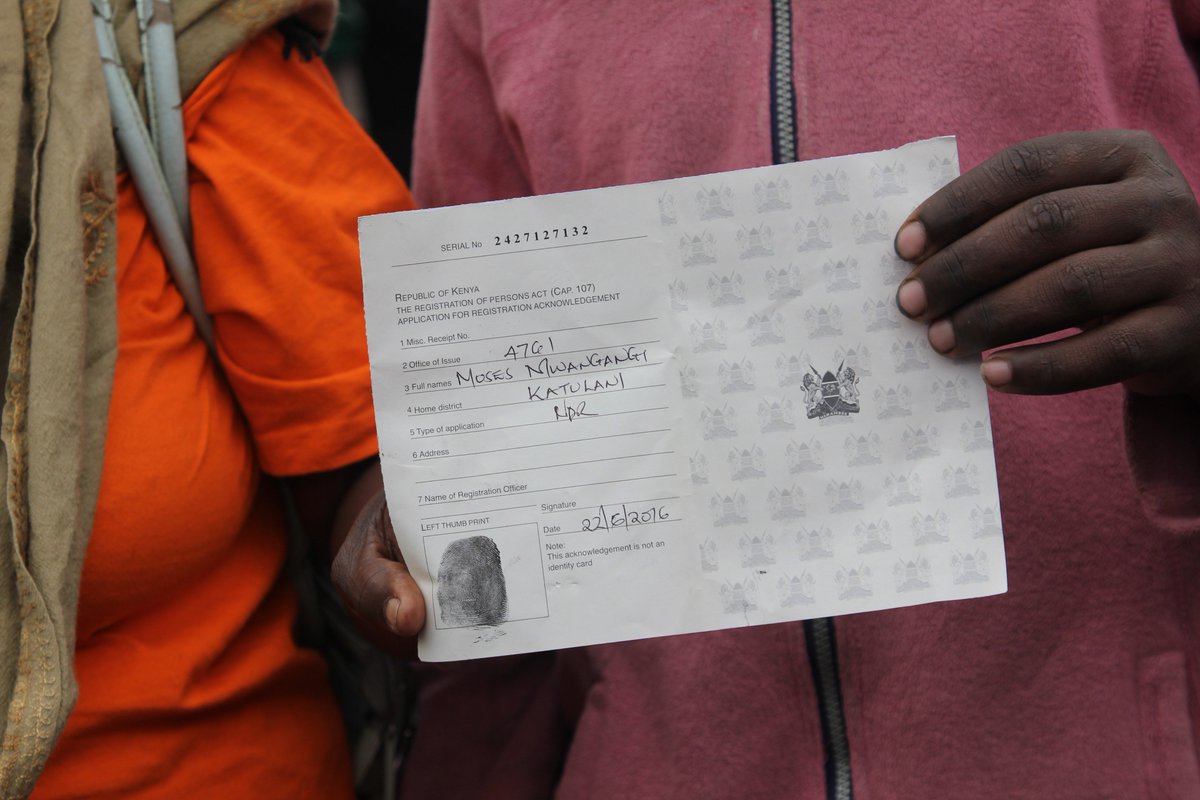 SERIAL No 2427127132
REPUBLIC OF KENYA
THE REGISTRATION OF PERSONS ACT (CAP. 107)
APPLICATION FOR REGISTRATION ACKNOWLEDGEMENT
1 Misc. Receipt No.
2 Office of Issue 4761
3 Full names MOSES MWANGANGI
4 Home district KATULANI
5 Type of application NPR
6 Address
7 Name of Registration Officer
Signature
LEFT THUMB PRINT
Date 22/6/2016
Note:
This acknowledgement is not an
identity card